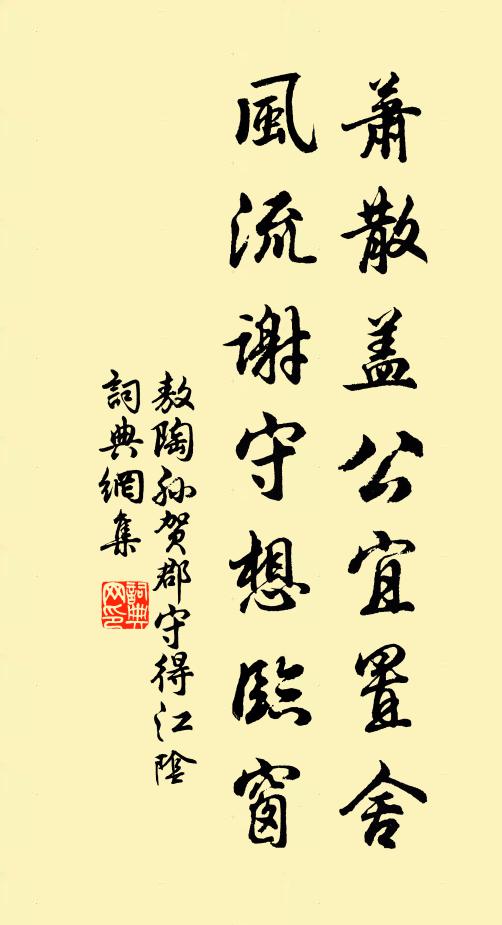 蕭散盖公宜置舍
風流谢守想臨窗
敖陶孙贺郡守得江陰
詞典網集
詞典网印